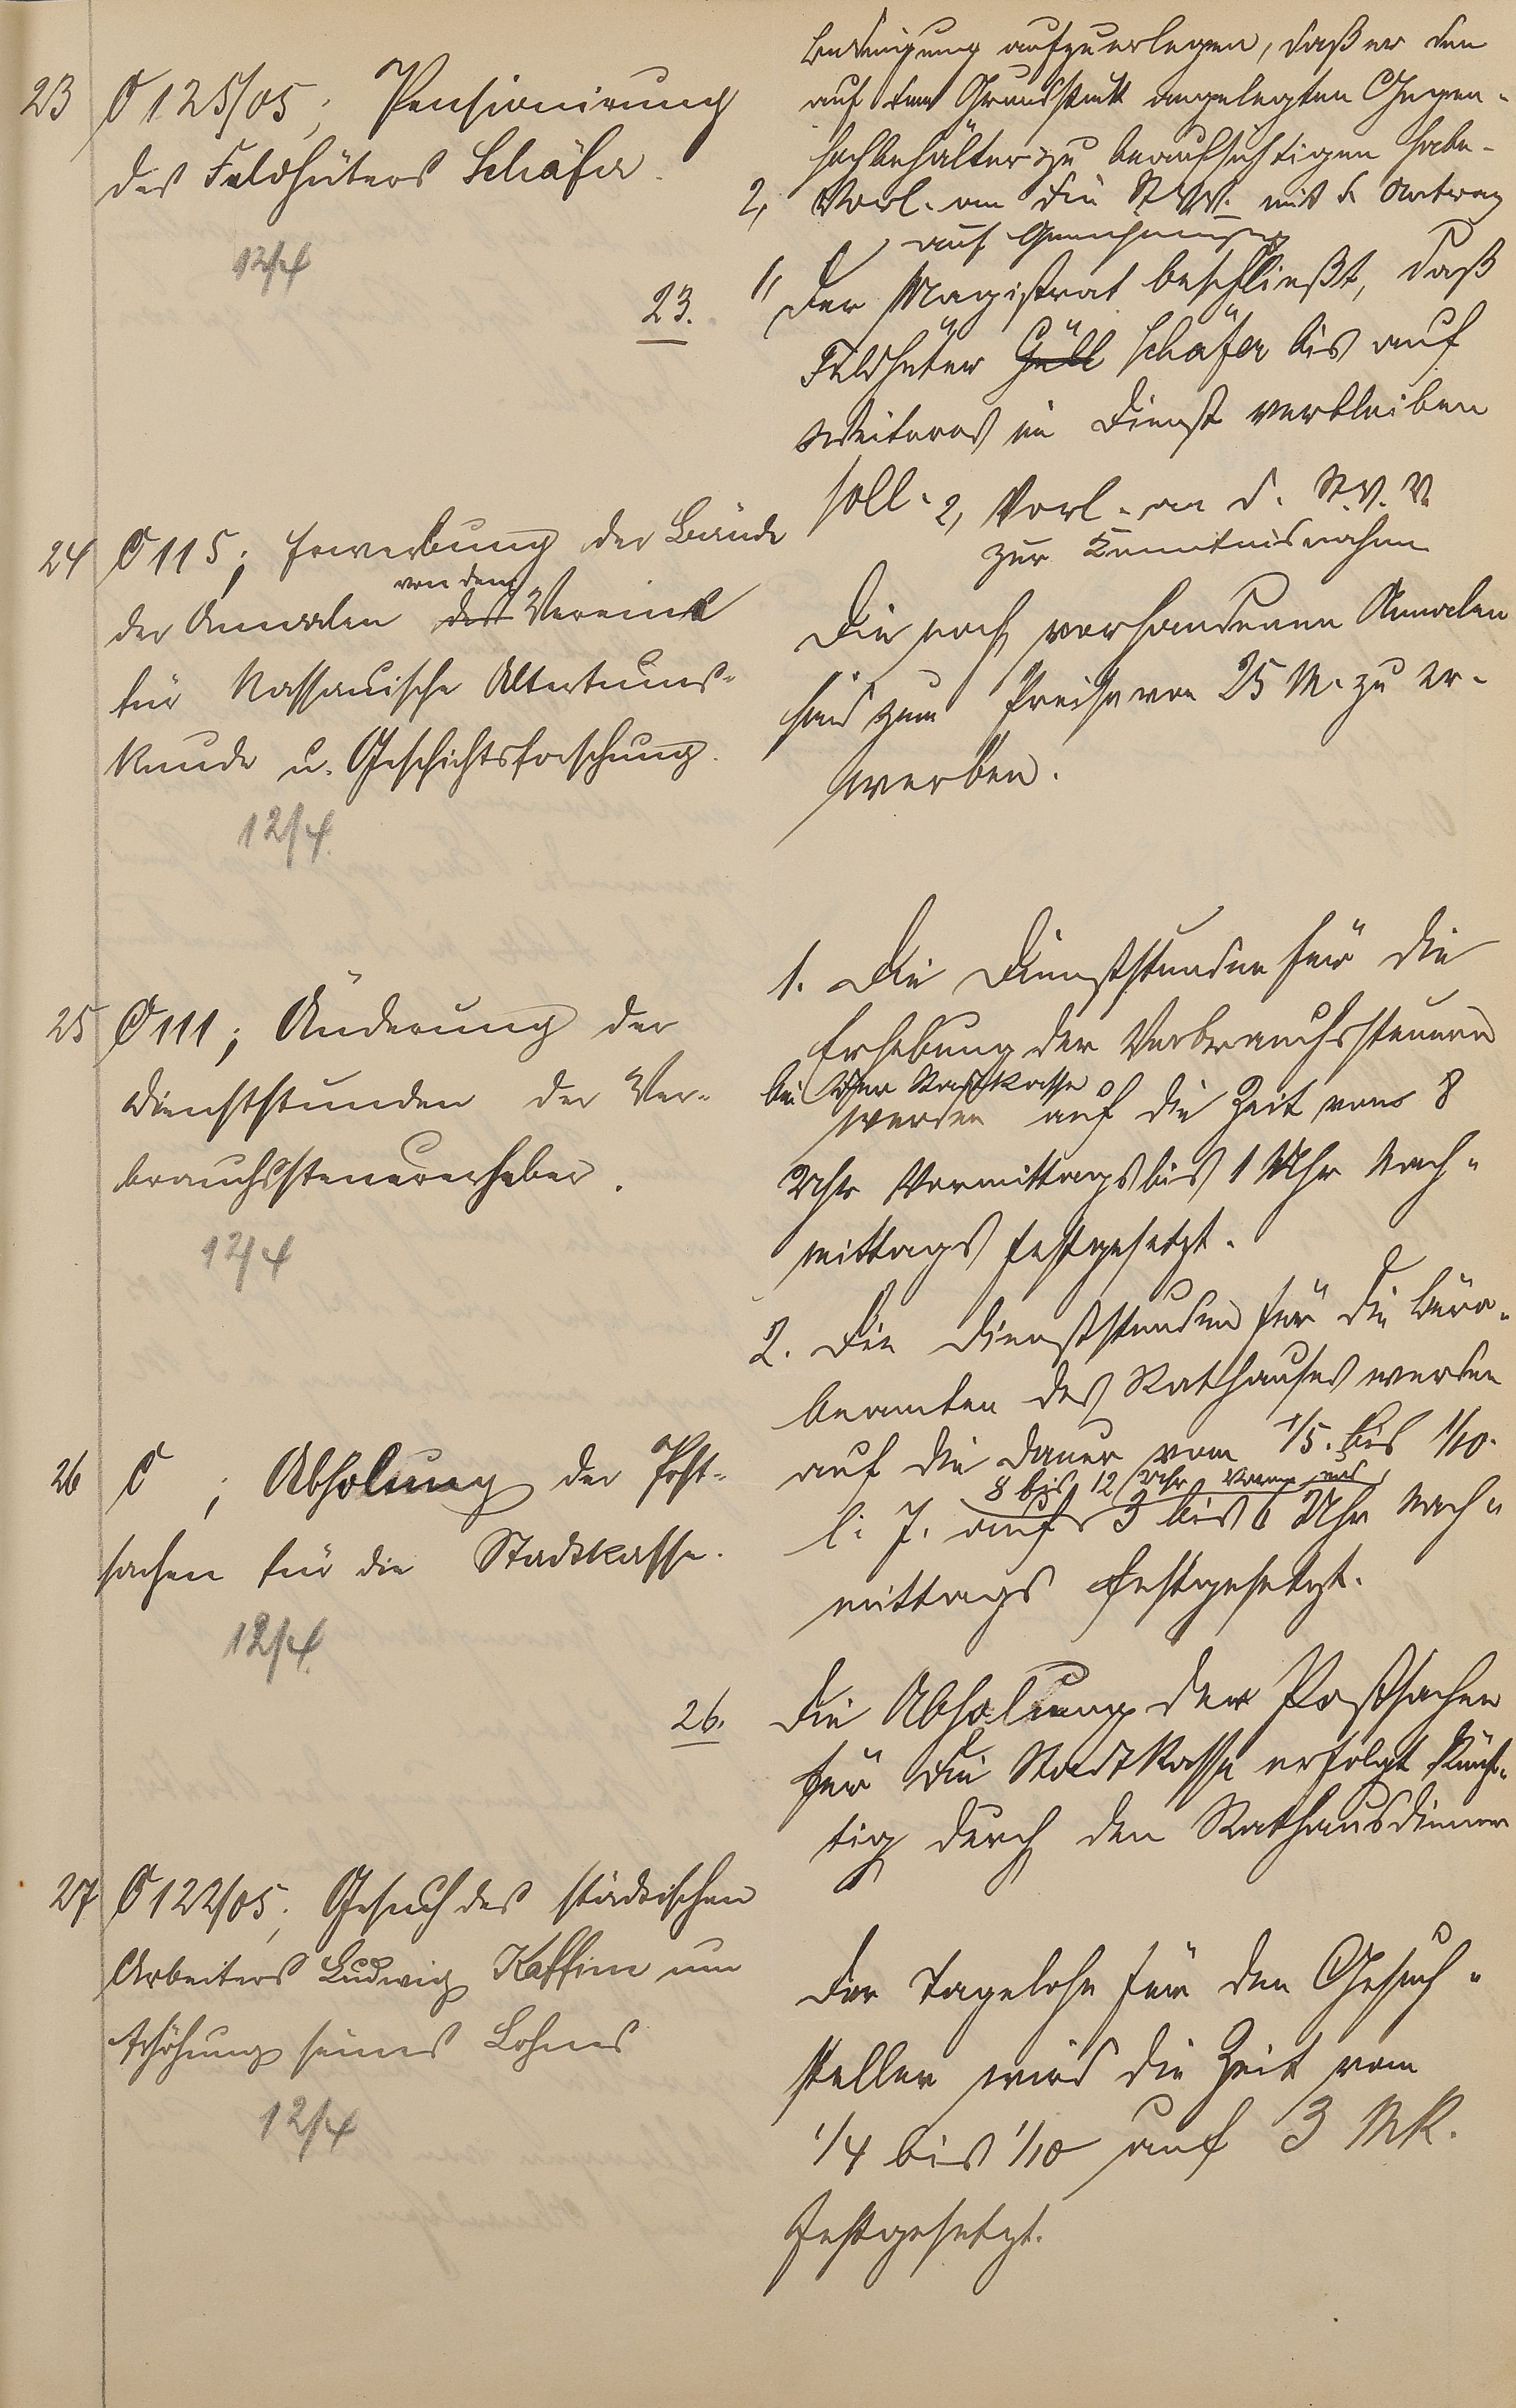 23 C 125/05; Pensionirung
des Feldhüters Schäfer.
12/4
24 C 115; Erwerbung der Bände
von dem
der Annalen des Vereins
für Nassauische Altertums-
kunde u. Geschichtsforschung.
12/4.
25 C 111; Änderung der
Dienststunden der Ver-
brauchssteuererheber.
12/4
26 C ; Abholung der Post-
sachen für die Stadtkasse.
12/4.
27 C 122/05; Gesuch des städtischen
Arbeiters Ludwig Kaffine um
Erhöhung seines Lohnes
12/4
Bedingung aufzuerlegen, daß er den
auf dem Grundstück angelegten
zu beaufsichtigen habe.
2, Vorl. an die St.V.V. mit d. Antrag
auf Genehmigung
23. 1, Der Magistrat beschließt, daß
Feldhüter Güll Schäfer bis auf
Weiteres im Dienst verbleiben
soll. 2, Vorl. an d. St.V.V.
zur Kenntnisnahme
Die noch vorhandenen Annalen
sind zum Preise von 25 M. zu er-
werben.
1. Die Dienststunden für die
Erhebung der Verbrauchssteuern
bei der Stadtkasse
werden auf die Zeit von 8
Uhr Vormittags bis 1 Uhr Nach-
mittags festgesetzt.
2. Die Dienststunden für die Büro-
beamten des Rathauses werden
auf die Dauer vom 1/5. bis 1/10.
8 bis 12 Uhr Vorm. und
l. J. auf 3 bis 6 Uhr Nach-
mittags festgesetzt.
26. Die Abholung der Postsachen
für die Stadtkasse erfolgt künf-
tig durch den Rathausdiener
Der Tagelohn für den Gesuch-
steller wird die Zeit vom
1/4 bis 1/10 auf 3 Mk.
festgesetzt.